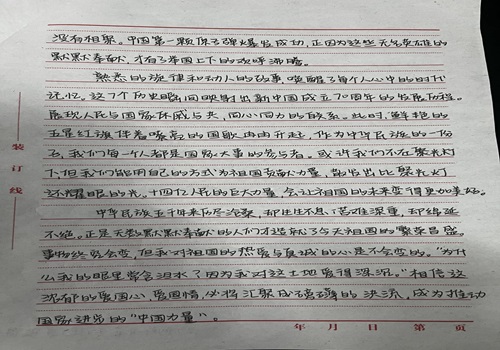 没有相聚。中国第一颗原子弹爆发成功,正因为这些无名英雄的
默默奉献,才有了举国上下的欢呼沸腾。
熟悉的旋律和动人的故事唤醒了每个人心中的时代
记忆。这7个历史瞬间映射出新中国成立70周年的发展历程。
展现人民与国家休戚与共、同心同力的联系。此时,鲜艳的
五星红旗伴着嘹亮的国歌冉冉升起,作为中华民族的一份
子,我们每一个人都是国家大事的参与者。或许我们不在聚光灯
下,但我们能用自己的方式为祖国贡献力量,散发出比聚光灯
还耀眼的光。十四亿人民的巨大力量,会让祖国的未来变得更加美好。
中华民族五千年来历尽沧桑,却生生不息;苦难深重,却绵延
不绝。正是无数默默奉献的人们才造就了今天祖国的繁荣昌盛。
事物终究会变,但我对祖国的热爱与真诚的心是不会变的。“为什
么我的眼里常含泪水?因为我对这土地爱得深沉。”相信这
浓郁的爱国心,爱国情,必将汇聚成磅礴的洪流,成为推动
国家进步的“中国力量”。
装订线
年 月 日 第 页